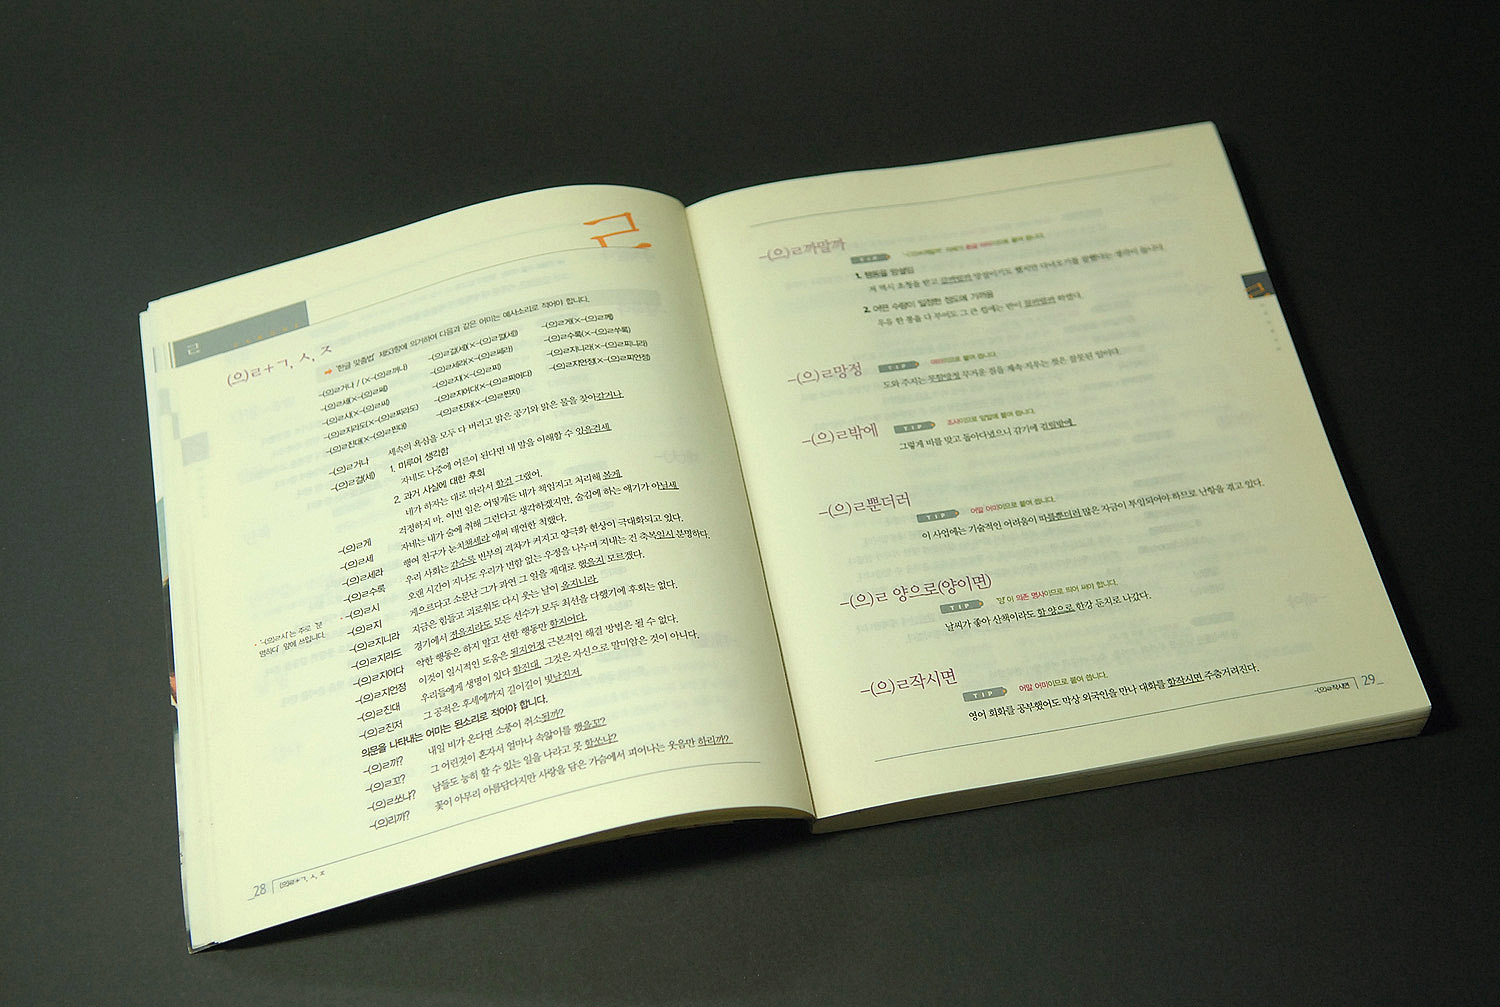 ㄹ
ㄹ
(으)ㄹ+ㄱ, ㅅ, ㅈ
'한글 맞춤법' 제53항에 의거하여 다음과 같은 어미는 예사소리로 적어야 합니다.
-(으)ㄹ거나 / (×-(으)ㄹ꺼나) -(으)ㄹ걸(세)(×-(으)ㄹ껄(세)) -(으)ㄹ게(×-(으)ㄹ께)
-(으)ㄹ세(×-(으)ㄹ쎄) -(으)ㄹ세라(×-(으)ㄹ쎄라) -(으)ㄹ수록(×-(으)ㄹ쑤록)
-(으)ㄹ시(×-(으)ㄹ씨) -(으)ㄹ지(×-(으)ㄹ찌) -(으)ㄹ지니라(×-(으)ㄹ찌니라)
-(으)ㄹ지라도(×-(으)ㄹ찌라도) -(으)ㄹ지어다(×-(으)ㄹ찌어다) -(으)ㄹ지언정(×-(으)ㄹ찌언정)
-(으)ㄹ진대(×-(으)ㄹ찐대) -(으)ㄹ진저(×-(으)ㄹ찐저)
-(으)ㄹ거나 세속의 욕심을 모두 다 버리고 맑은 공기와 맑은 물을 찾아갈거나.
-(으)ㄹ걸(세) 1. 미루어 생각함
자네도 나중에 어른이 된다면 내 말을 이해할 수 있을걸세.
2. 과거 사실에 대한 후회
네가 하자는 대로 따라서 할걸 그랬어.
-(으)ㄹ게 걱정하지 마. 이번 일은 어떻게든 내가 책임지고 처리해 볼게.
-(으)ㄹ세 자네는 내가 술에 취해 그런다고 생각하겠지만, 술김에 하는 얘기가 아닐세.
-(으)ㄹ세라 행여 친구가 눈치챌세라 애써 태연한 척했다.
-(으)ㄹ수록 우리 사회는 갈수록 빈부의 격차가 커지고 양극화 현상이 극대화되고 있다.
-(으)ㄹ시 오랜 시간이 지나도 우리가 변함 없는 우정을 나누며 지내는 건 축복일시 분명하다.
-(으)ㄹ지 게으르다고 소문난 그가 과연 그 일을 제대로 했을지 모르겠다.
-(으)ㄹ지니라 지금은 힘들고 괴로워도 다시 웃는 날이 올지니라.
-(으)ㄹ지라도 경기에서 졌을지라도 모든 선수가 모두 최선을 다했기에 후회는 없다.
-(으)ㄹ지어다 악한 행동은 하지 말고 선한 행동만 할지어다.
-(으)ㄹ지언정 이것이 일시적인 도움은 될지언정 근본적인 해결 방법은 될 수 없다.
-(으)ㄹ진대 우리들에게 생명이 있다 할진대, 그것은 자신으로 말미암은 것이 아니다.
-(으)ㄹ진저 그 공적은 후세에까지 길이길이 빛날진저.
의문을 나타내는 어미는 된소리로 적어야 합니다.
-(으)ㄹ까? 내일 비가 온다면 소풍이 취소될까?
-(으)ㄹ꼬? 그 어린것이 혼자서 얼마나 속앓이를 했을꼬?
-(으)ㄹ쏘냐? 남들도 능히 할 수 있는 일을 나라고 못 할쏘냐?
-(으)리까? 꽃이 아무리 아름답다지만 사랑을 담은 가슴에서 피어나는 웃음만 하리까?
'-(으)ㄹ시'는 주로 '분
명하다' 앞에 쓰입니다.
28 (으)ㄹ+ㄱ, ㅅ, ㅈ
-(으)ㄹ까말까
TIP
1. 행동을 망설임
2. 어떤 수량이 일정한 정도에 가까움
우유 한 통을 다 부어도 그 큰 컵에는 반이 찰까말까 하였다.
-(으)ㄹ망정
TIP 어미이므로 붙여 씁니다.
도와 주지는 못할망정 무거운 짐을 계속 지우는 것은 잘못된 일이다.
-(으)ㄹ밖에
TIP 조사이므로 앞말에 붙여 씁니다.
그렇게 비를 맞고 돌아다녔으니 감기에 걸릴밖에.
-(으)ㄹ뿐더러
TIP 어말 어미이므로 붙여 씁니다.
이 사업에는 기술적인 어려움이 따를뿐더러 많은 자금이 투입되어야 하므로 난항을 겪고 있다.
-(으)ㄹ 양으로(양이면)
TIP '양'이 의존 명사이므로 띄어 써야 합니다.
날씨가 좋아 산책이라도 할 양으로 한강 둔치로 나갔다.
-(으)ㄹ작시면
TIP 어말 어미이므로 붙여 씁니다.
영어 회화를 공부했어도 막상 외국인을 만나 대화를 할작시면 주춤거려진다.
-(으)ㄹ작시면 29
ㄹ